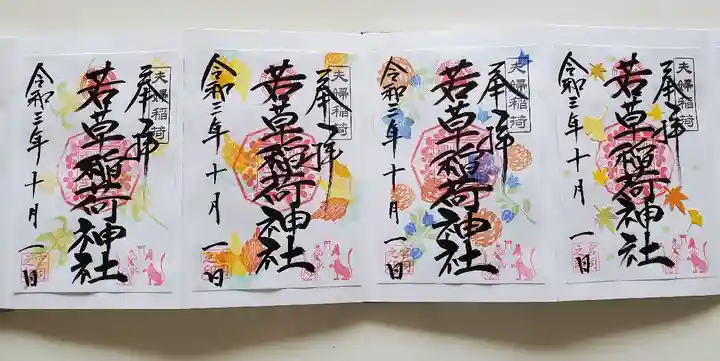 奉拝
夫婦稲荷
若草稲荷神社
令和三年十月一日
奉拝
夫婦稲荷
若草稲荷神社
令和三年十月一日
奉拝
夫婦稲荷
若草稲荷神社
令和三年十月一日
奉拝
夫婦稲荷
若草稲荷神社
令和三年十月一日